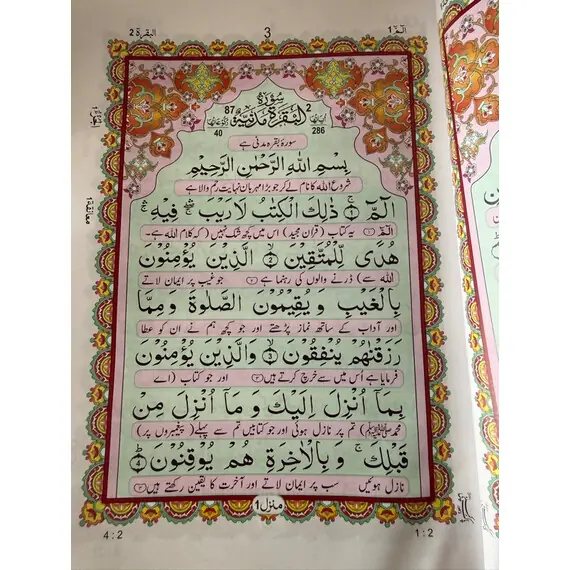 البقرة ٢
3
الٓمّٓ ١
سُوْرَةُ
87 الْبَقَرَةِ مَدَنِيَّةٌ 2
40 286
سورۂ بقرہ مدنی ہے
بِسْمِ اللّٰهِ الرَّحْمٰنِ الرَّحِيْمِ
شروع اللہ کا نام لے کر جو بڑا مہربان نہایت رحم والا ہے
الٓمّٓ ۚ ۝1 ذٰلِكَ الْكِتٰبُ لَا رَيْبَ ۛ فِيْهِ ۛ
الٓمّٓ ۝۱ یہ کتاب (قرآن مجید) اس میں کچھ شک نہیں (کہ کلام اللہ ہے۔
هُدًى لِّلْمُتَّقِيْنَ ۝2 الَّذِيْنَ يُؤْمِنُوْنَ
اللہ سے) ڈرنے والوں کی رہنما ہے ۝۲ جو غیب پر ایمان لاتے
بِالْغَيْبِ وَ يُقِيْمُوْنَ الصَّلٰوةَ وَ مِمَّا
اور آداب کے ساتھ نماز پڑھتے اور جو کچھ ہم نے ان کو عطا
رَزَقْنٰهُمْ يُنْفِقُوْنَ ۝3 وَالَّذِيْنَ يُؤْمِنُوْنَ
فرمایا ہے اُس میں سے خرچ کرتے ہیں ۝۳ اور جو کتاب (اے
بِمَاۤ اُنْزِلَ اِلَيْكَ وَ مَاۤ اُنْزِلَ مِنْ
محمد ﷺ) تم پر نازل ہوئی اور جو کتابیں تم سے پہلے (پیغمبروں پر)
قَبْلِكَ ۚ وَ بِالْاٰخِرَةِ هُمْ يُوْقِنُوْنَ ۝4
نازل ہوئیں سب پر ایمان لاتے اور آخرت کا یقین رکھتے ہیں ۝۴
منزل 1
معانقة ١
4 : 2
1 : 2